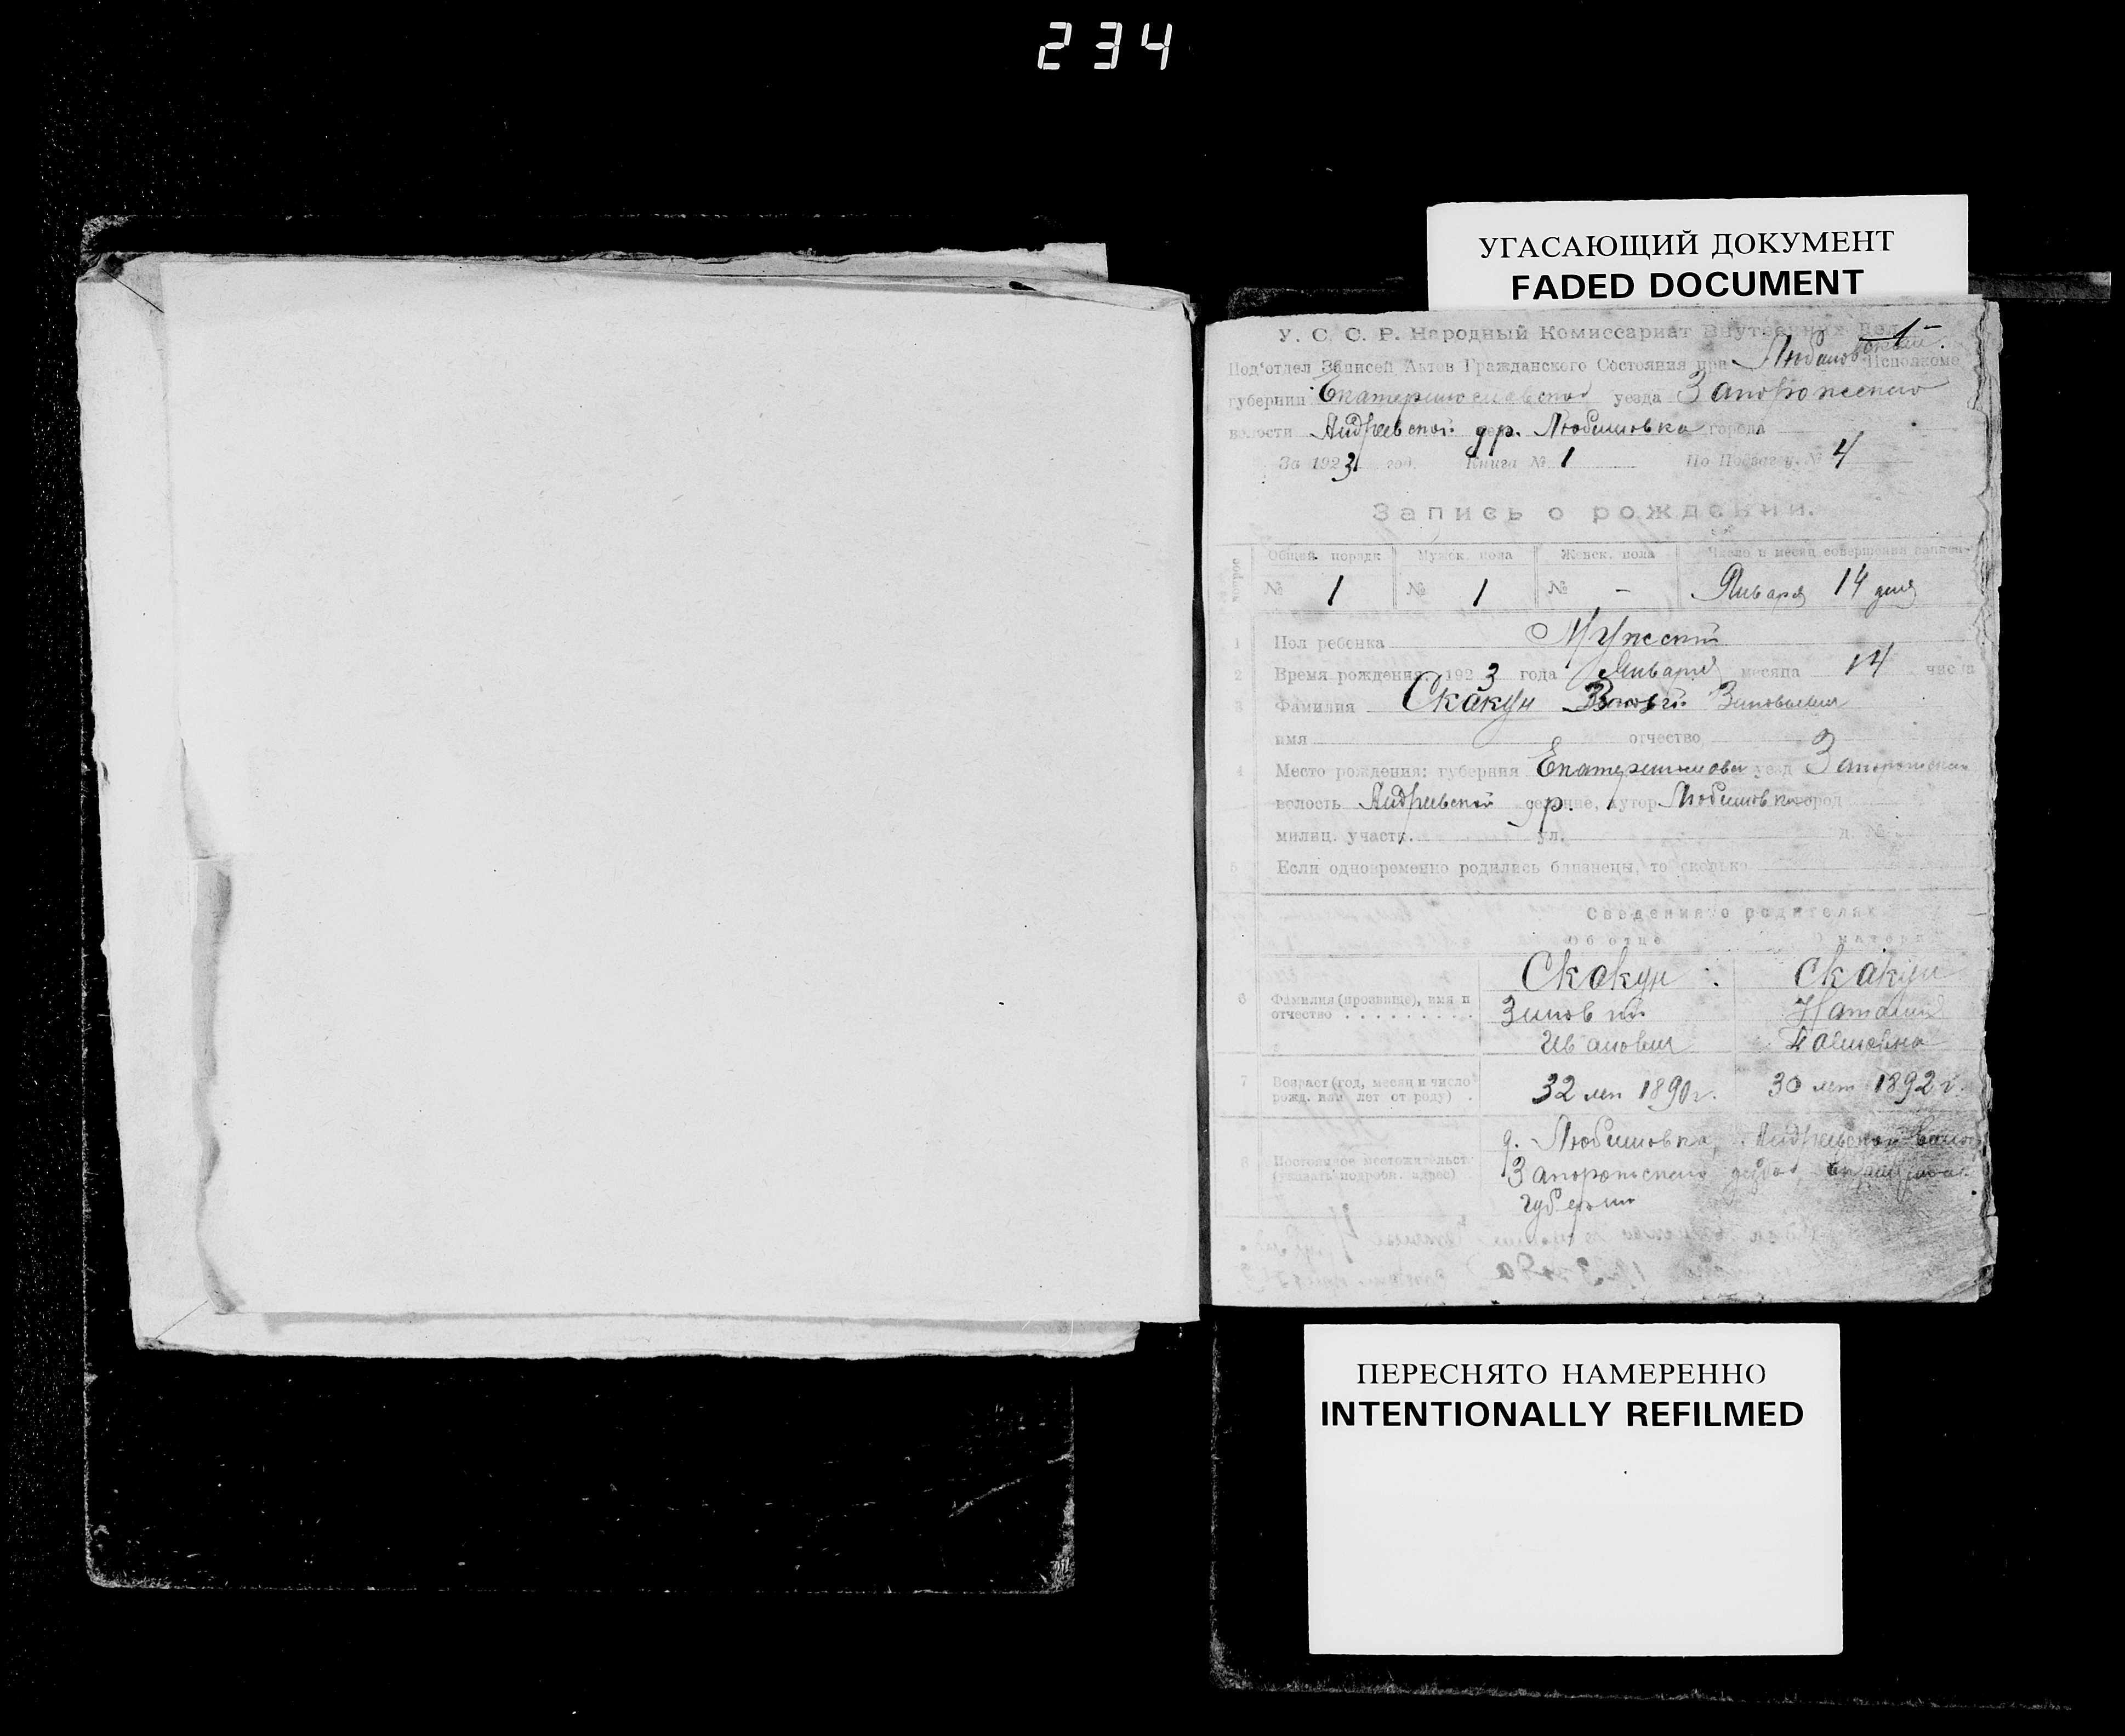 234
УГАСАЮЩИЙ ДОКУМЕНТ
FADED DOCUMENT
1
У. С. С. Р. Народный Комиссариат Внутренних Дел
Под'отдел Записей Актов Гражданского Состояния при Исполкоме
губернии Екатеринославской уезда Запорожского
волости Андреевской др. Любимовка города
За 1923 год. Книга № 1 По № 4
Запись о рождении.
Общей порядк Мужск. пола Женск. пола Число и месяц совершения записи
№ 1 № 1 № - Января 14 дня
1 Пол ребенка Мужской
2 Время рождения 1923 года Января месяца 14 числа
3 Фамилия Скакун Зиновьевич
имя отчество
4 Место рождения: губерния уезд
волость Андреевской др. хутор Любимовка город
милиц. участк. ул. д. №
5 Если одновременно родились близнецы, то сколько
Сведения о родителях
Об отце О матери
6 Фамилия (прозвище), имя и отчество Скакун Зиновий Иванович Скакун Наталия
7 Возраст (год, месяц и число рожд. или лет от роду) 32 лет 1890 г. 30 лет 1892 г.
8 Постоянное местожительст. (указать подробн. адрес) д. Любимовка, Андреевской
Запорожского уезда
губернии
ПЕРЕСНЯТО НАМЕРЕННО
INTENTIONALLY REFILMED